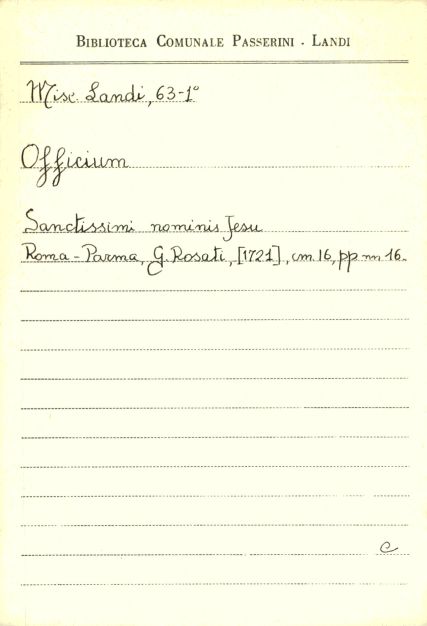 BIBLIOTECA COMUNALE PASSERINI - LANDI
Misc. Landi, 63-1°
Officium
Sanctissimi nominis Jesu
Roma - Parma, G. Rosati, [1721], cm. 16, pp nn 16.
C